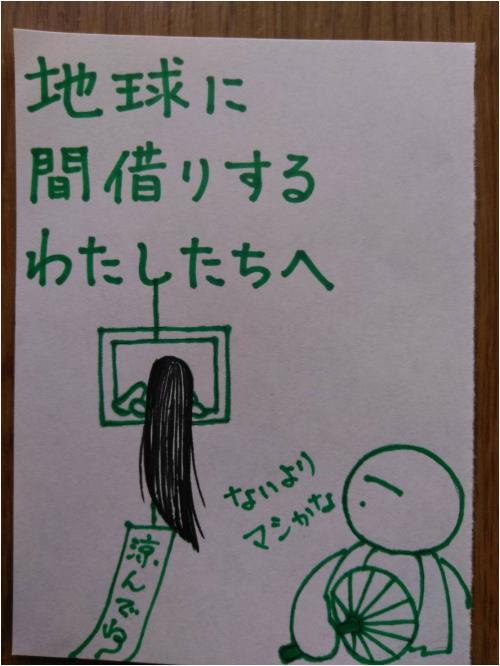 地球に
間借りする
わたしたちへ
ないより
マシかな
涼んでね